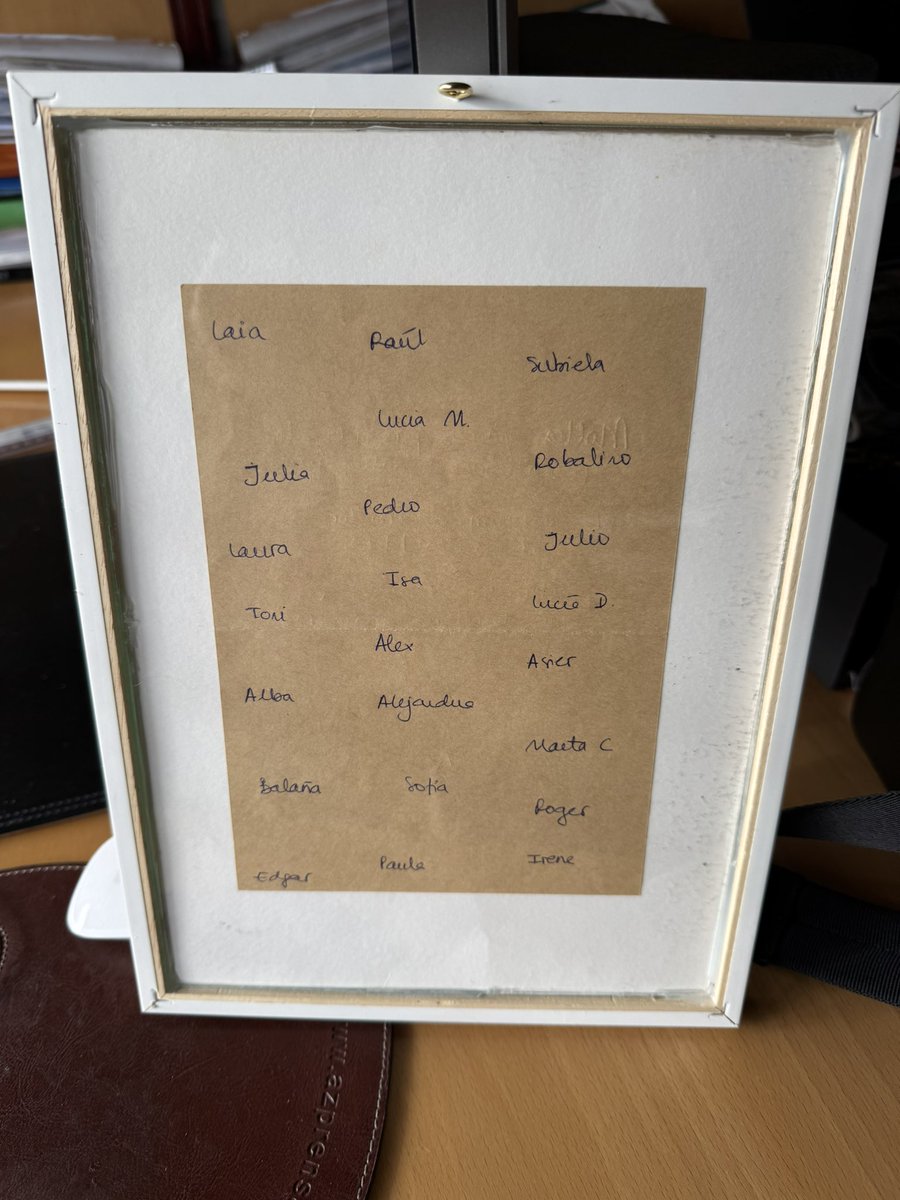 Laia
Raúl
Subiela
Lucia M.
Julia
Robalino
Pedro
Laura
Julio
Isa
Toni
Lucía D.
Alex
Asier
Alba
Alejandra
Marta C
Balaña
Sofía
Roger
Edgar
Paula
Irene
www.azprensa